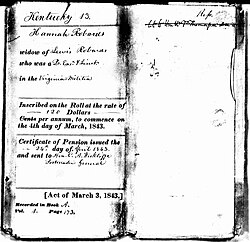 Kentucky 13.
Hannah Robards
widow of Lewis Robards
who was a
in the Virginia Militia
Inscribed on the Roll at the rate of
120 Dollars
Cents per annum, to commence on
the 4th day of March, 1843.
Certificate of Pension issued the
day of April 1843
and sent to Hon. C. A. Wickliffe
Postmaster General
[Act of March 3, 1843.]
Recorded in Book A.
Vol. 1. Page 173.